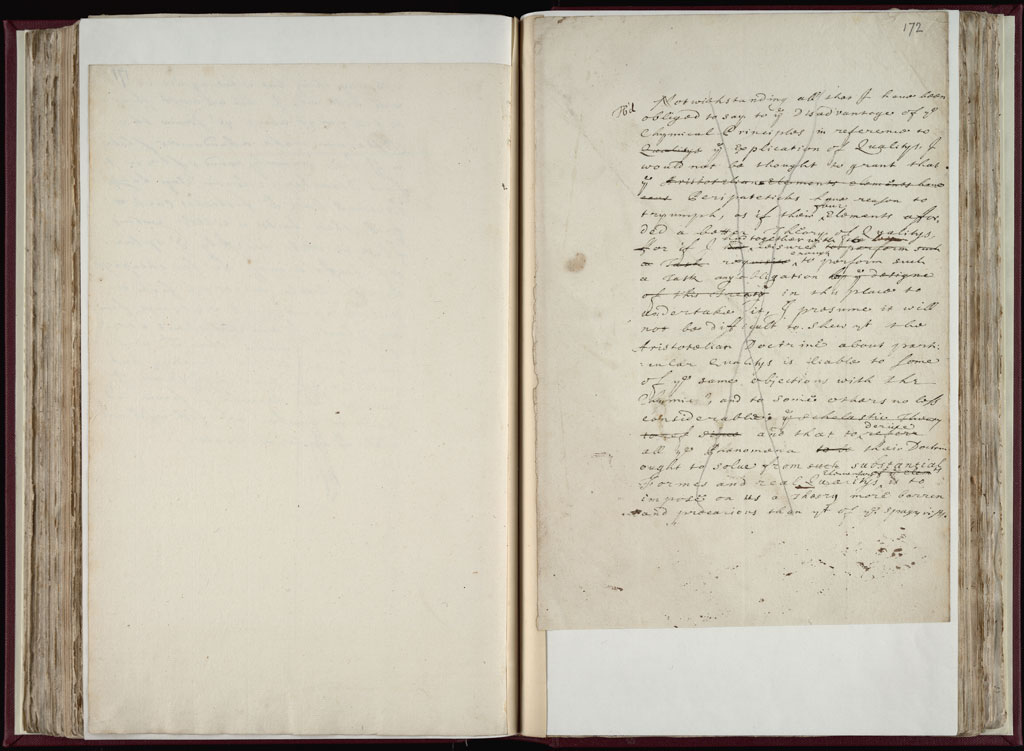 172
Notwithstanding all that I have been
obliged to say to ye Disadvantage of ye
Chymical Principles in reference to
Qualitys ye Explication of Qualitys, I
would not be thought to grant that
ye Aristotelian Elements elements have
Peripateticks have reason to
tryumph, as if their four Elements affor-
ded a better Theory of Qualitys.
for if I had together with leisure to perform such
a Task requisite enough to perform such
a Task any obligation by ye designe
of this Treaty in this place to
undertake it, I presume it will
not be difficult to shew yt the
Aristotelian Doctrine about parti-
cular Qualitys is liable to some
of ye same objections with the
Chymists, and to some others no less
considerable: ye scholastic Theory
and that to derive
all ye Phaenomena their Doctrin
ought to solve from such substantiall
Formes and real Qualitys Elementary is to
impose on us a Theory more barren
and precarious than yt of ye Spagyrists.